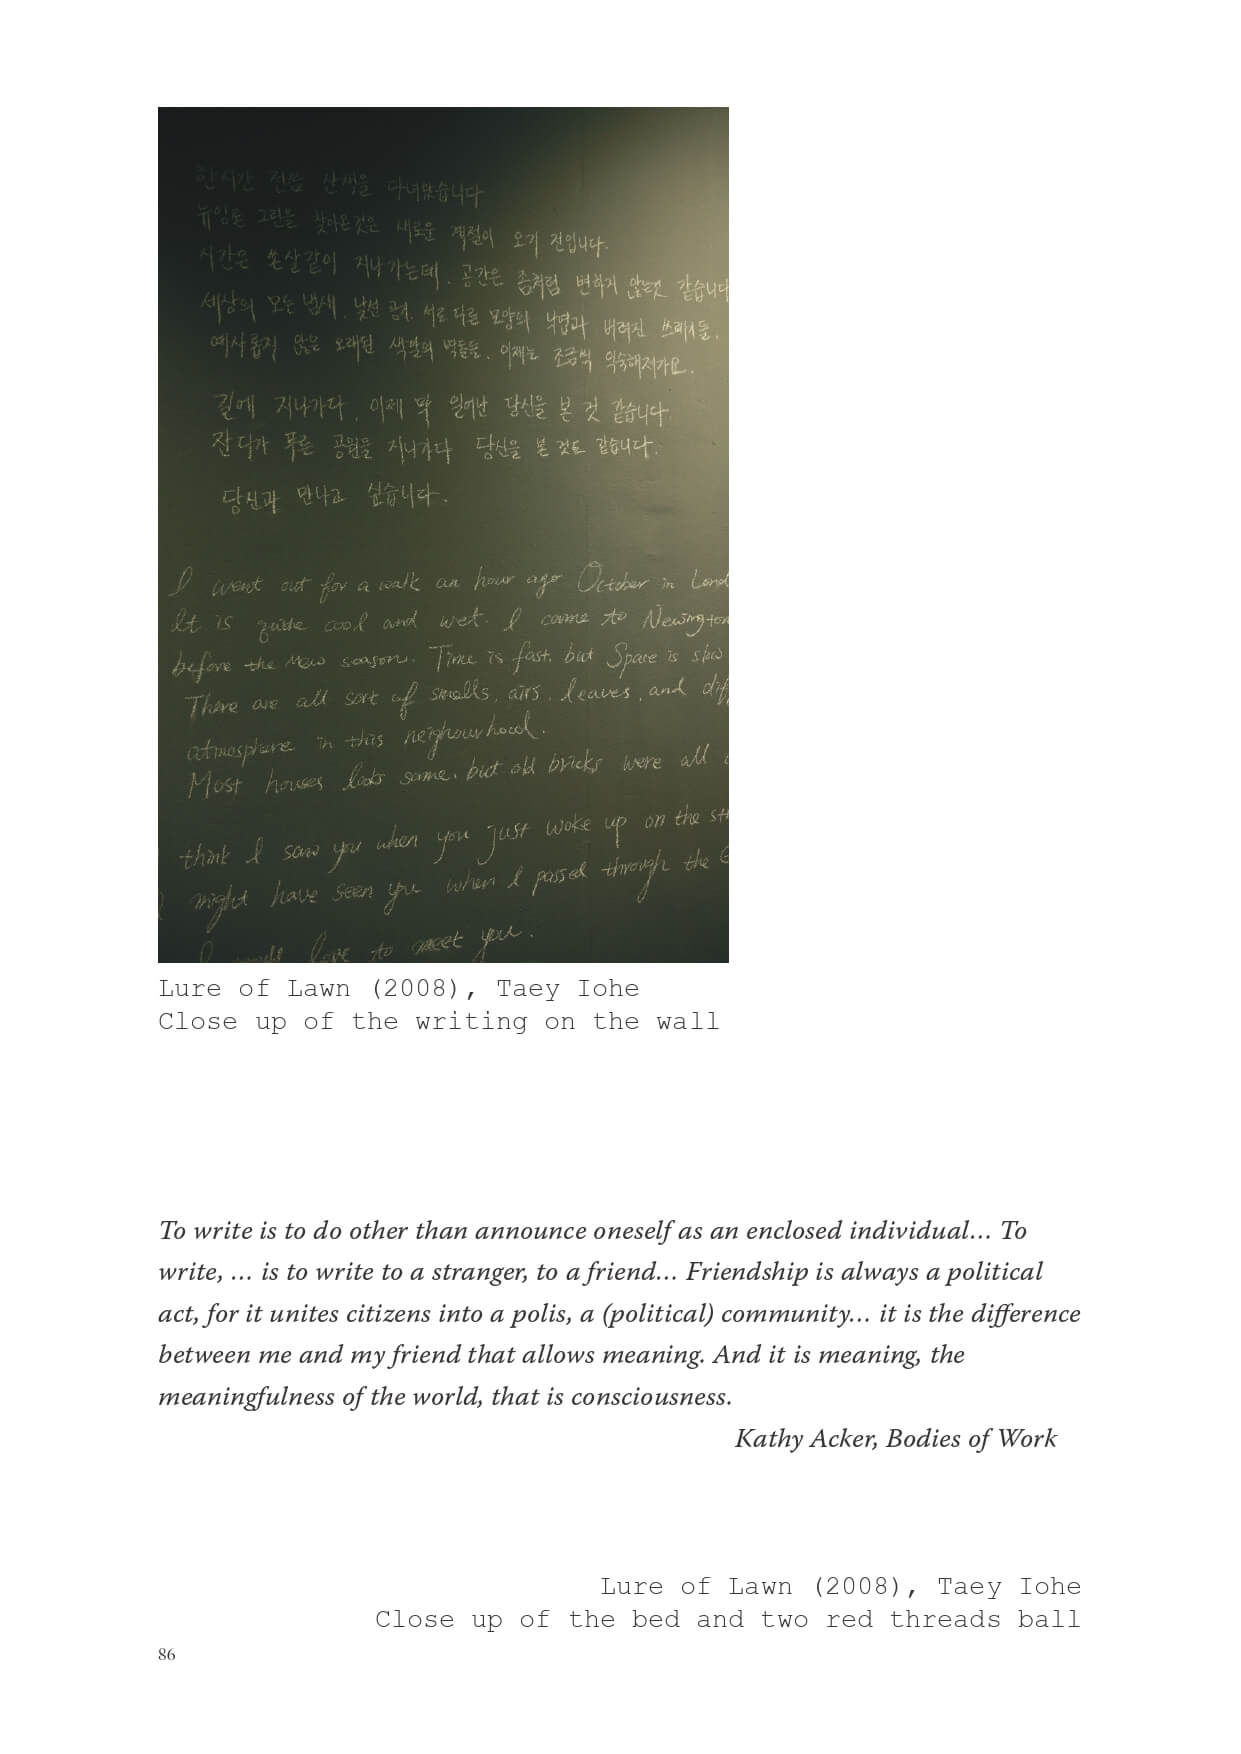 한시간 전쯤 산책을 다녀왔습니다
뉴잉톤 그린을 찾아온것은 새로운 계절이 오기 전입니다.
시간은 쏜살같이 지나가는데, 공간은 좀처럼 변하지 않는것 같습니다
세상의 모든 냄새, 낯선 공기, 서로 다른 모양의 낙엽과 버려진 쓰레기들,
예사롭지 않은 오래된 색깔의 벽돌들, 이제는 조금씩 익숙해져가요.
길에 지나가다, 이제 막 일어난 당신을 본 것 같습니다.
잔디가 푸른 공원을 지나가다 당신을 본 것도 같습니다.
당신과 만나고 싶습니다.
I went out for a walk an hour ago October in Lond
It is quite cool and wet. I came to Newington
before the new season. Time is fast, but Space is slow
There are all sort of smells, airs, leaves, and diff
atmosphere in this neighourhood.
Most houses looks same, but old bricks were all
think I saw you when you just woke up on the str
I might have seen you when I passed through the G
I would love to meet you.
Lure of Lawn (2008), Taey Iohe
Close up of the writing on the wall
To write is to do other than announce oneself as an enclosed individual… To
write, … is to write to a stranger, to a friend… Friendship is always a political
act, for it unites citizens into a polis, a (political) community… it is the difference
between me and my friend that allows meaning. And it is meaning, the
meaningfulness of the world, that is consciousness.
Kathy Acker, Bodies of Work
Lure of Lawn (2008), Taey Iohe
Close up of the bed and two red threads ball
86